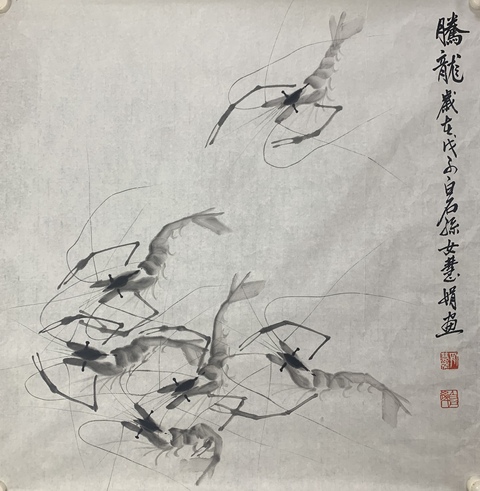 騰龍歲在戊子白石孫女慧娟畫